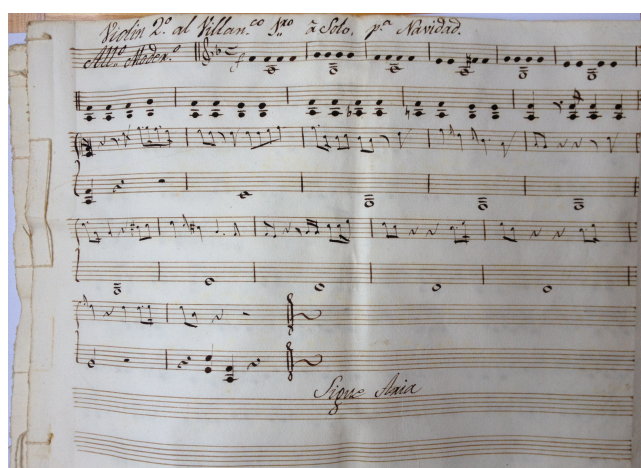 Violin 2.º al Villan.co 1.ro à Solo, p.ª Navidad.
All.º Moder.º
Sigue Aria